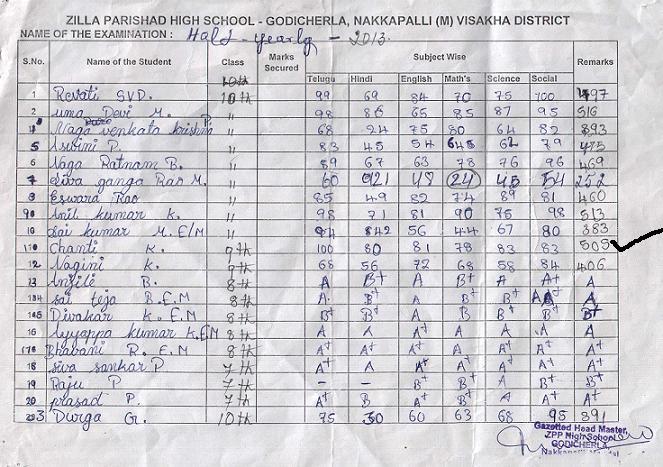 ZILLA PARISHAD HIGH SCHOOL - GODICHERLA, NAKKAPALLI (M) VISAKHA DISTRICT
NAME OF THE EXAMINATION : Half - yearly - 2013.
S.No. Name of the Student Class Marks Secured Subject Wise Remarks
Telugu Hindi English Math's Science Social
10th
1 Revati S.V.D. 10th 99 69 84 70 75 100 497
2 uma Devi M. " 98 86 65 85 87 95 516
Naga venkata krishna P. " 68 24 75 80 64 82 393
5 Asvini P. " 83 45 54 62 79
6 Naga Ratnam B. " 89 67 63 78 76 96 469
7 Siva ganga Rao M. " 60 21 48 24 45 54 252
8 Eswara Rao " 85 49 82 74 89 81 460
9 Anil kumar K. " 98 71 81 90 75 98 513
10 Sai kumar M. E/M " 94 42 56 44 67 80 383
11 Chanti K. 9th 100 80 81 78 83 83 505
12 Nagini K. 9th 68 56 72 68 58 84 406
13 B. 8th A B+ A B+ A A+ A
14 sai teja B.E.M 8th A B+ A B+ B+ A A
15 Divakar K. E.M 8th B+ B+ A B+ B+ B+
16 Ayyappa kumar K.E.M 8th A A A+ A A A A
17 Bhavani R. E.M 8th A+ A+ A+ A A+ A+ A+
18 siva sankar P 7th A+ A A+ A+ A+ A+ A+
19 Raju P 7th - - B+ B+ A B+ B+
20 prasad P. 7th A B A+ A+ A A+ A+
Durga G. 10th 75 30 60 63 68 95 391
Gazetted Head Master,
ZPP High School
GODICHERLA,
Nakkapalli Mandal